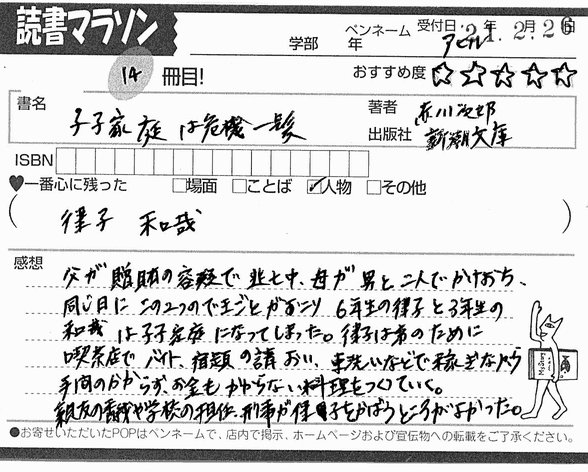 読書マラソン
学部 年 ペンネーム アヒル 受付日: 21年 2月 26日
14 冊目!
おすすめ度 ☆☆☆☆☆
書名 子子家庭は危機一髪
著者 赤川次郎
出版社 新潮文庫
ISBN
♥一番心に残った □場面 □ことば ☑人物 □その他
( 律子 和哉 )
感想
父が贈賄の容疑で逃亡中、母が男と二人でかけおち、
同じ日にこの2つのできごとがおこり 6年生の律子と3年生の
和哉は子子家庭になってしまった。律子は弟のために
喫茶店でバイト、宿題の請おい、車洗いなどで稼ぎながら
手間のかからず、お金もかからない料理をつくていく。
親友の 学校の担任、刑事が律子をかばうところがよかった。
●お寄せいただいたPOPはペンネームで、店内で掲示、ホームページおよび宣伝物への転載をご了承ください。